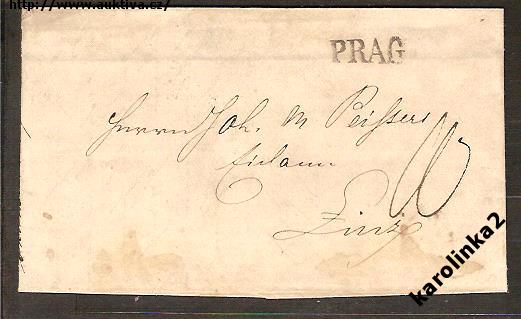 http://www.auktiva.cz/
PRAG
Herrn Joh. M Peissers
Eidam
Linz
karolinka2